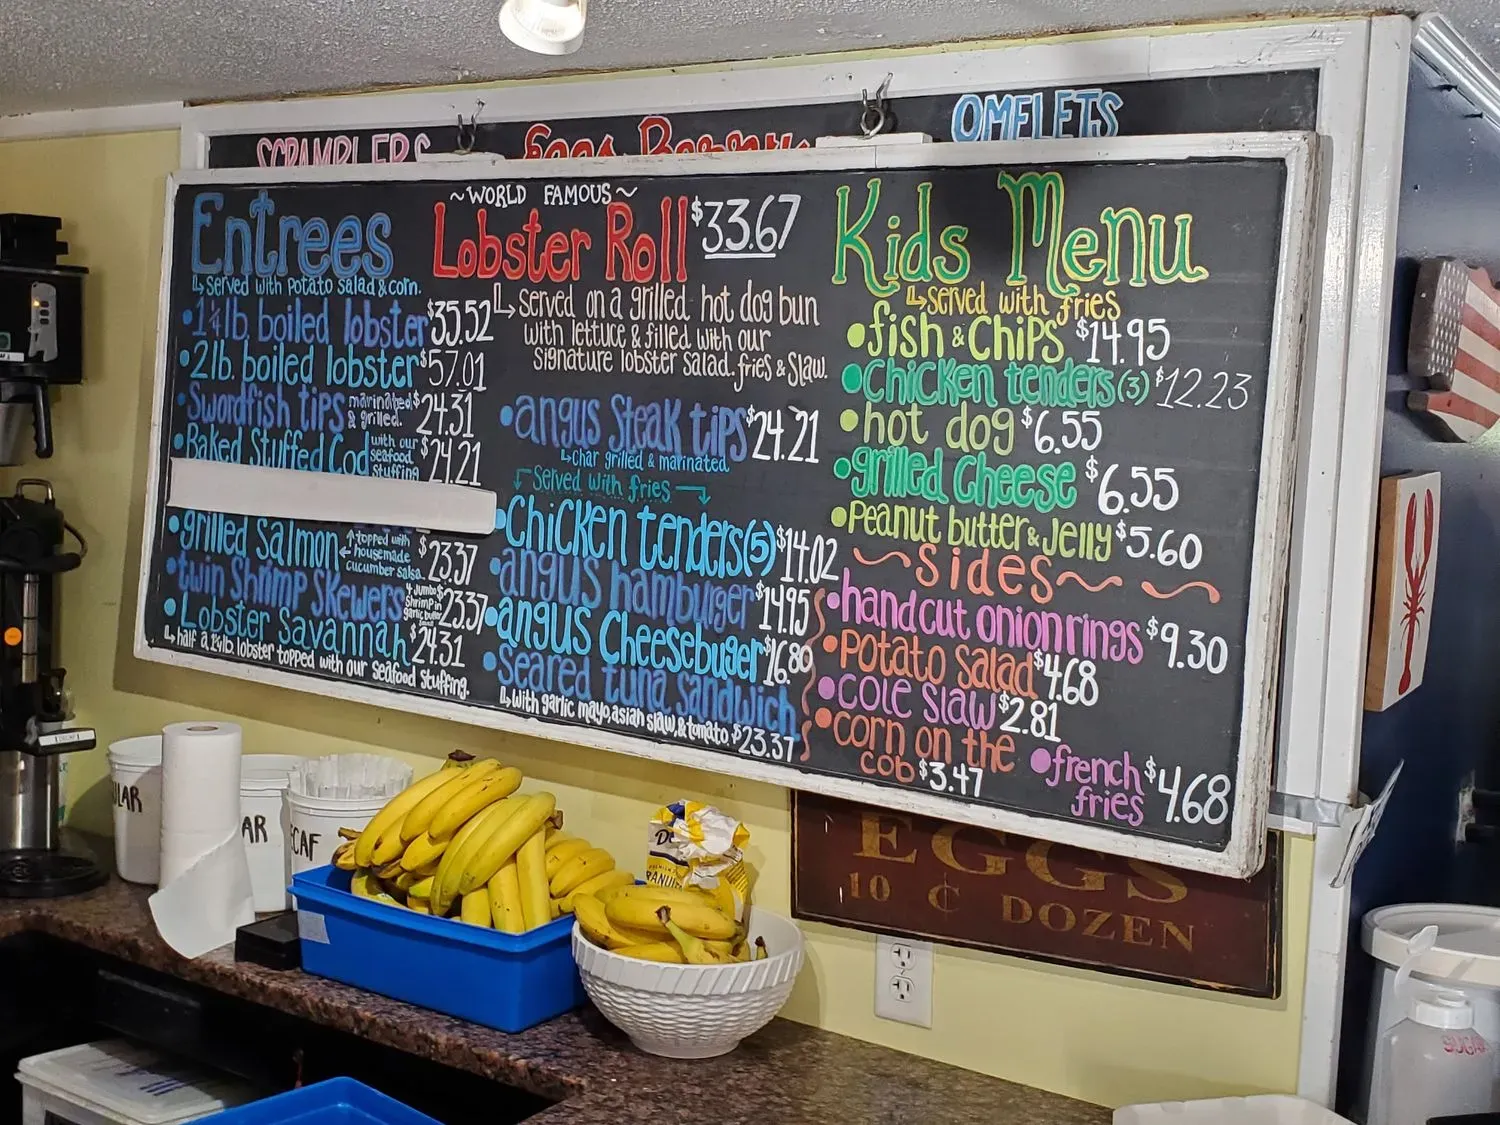 SCRAMBLERS
Eggs Benny
OMELETS
Entrees
served with potato salad & corn.
1¼ lb. boiled lobster $35.52
2 lb. boiled lobster $57.01
Swordfish tips marinated & grilled. $24.31
Baked Stuffed Cod with our seafood stuffing $24.21
grilled salmon topped with housemade cucumber salsa $23.37
twin Shrimp Skewers 4 Jumbo Shrimp in garlic butter $23.37
Lobster Savannah $24.31
half a 1¼ lb. lobster topped with our seafood stuffing.
~WORLD FAMOUS~
Lobster Roll $33.67
served on a grilled hot dog bun
with lettuce & filled with our
signature lobster salad. fries & slaw.
angus steak tips $24.21
char grilled & marinated
served with fries
Chicken tenders (5) $14.02
angus hamburger $14.95
angus Cheesebuger $16.80
seared tuna sandwich
with garlic mayo, asian slaw, & tomato. $23.37
Kids Menu
served with fries
fish & Chips $14.95
Chicken tenders (3) $12.23
hot dog $6.55
grilled Cheese $6.55
Peanut butter & Jelly $5.60
~Sides~
handcut onion rings $9.30
Potato Salad $4.68
Cole Slaw $2.81
corn on the
cob $3.47
french
fries $4.68
EGGS
10 ¢ DOZEN
DECAF
LAR
AR
CAF
SUGAR